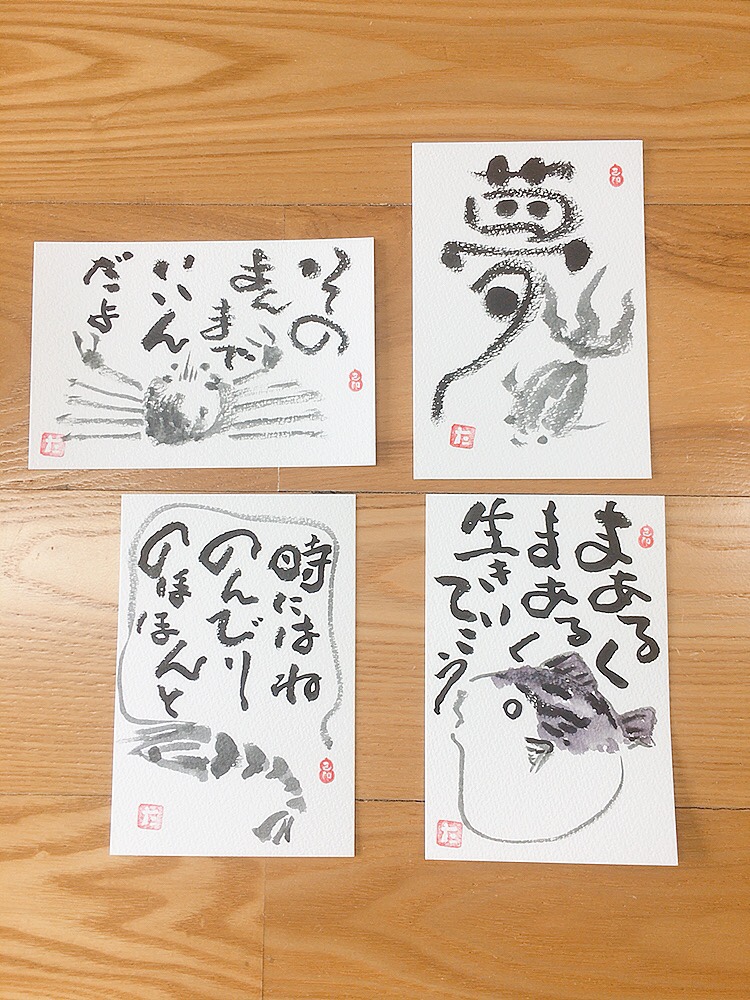 その
まんまで
いいん
だよ
夢
時にはね
のんびり
のほほんと
まあるく
まあるく
生きていこう